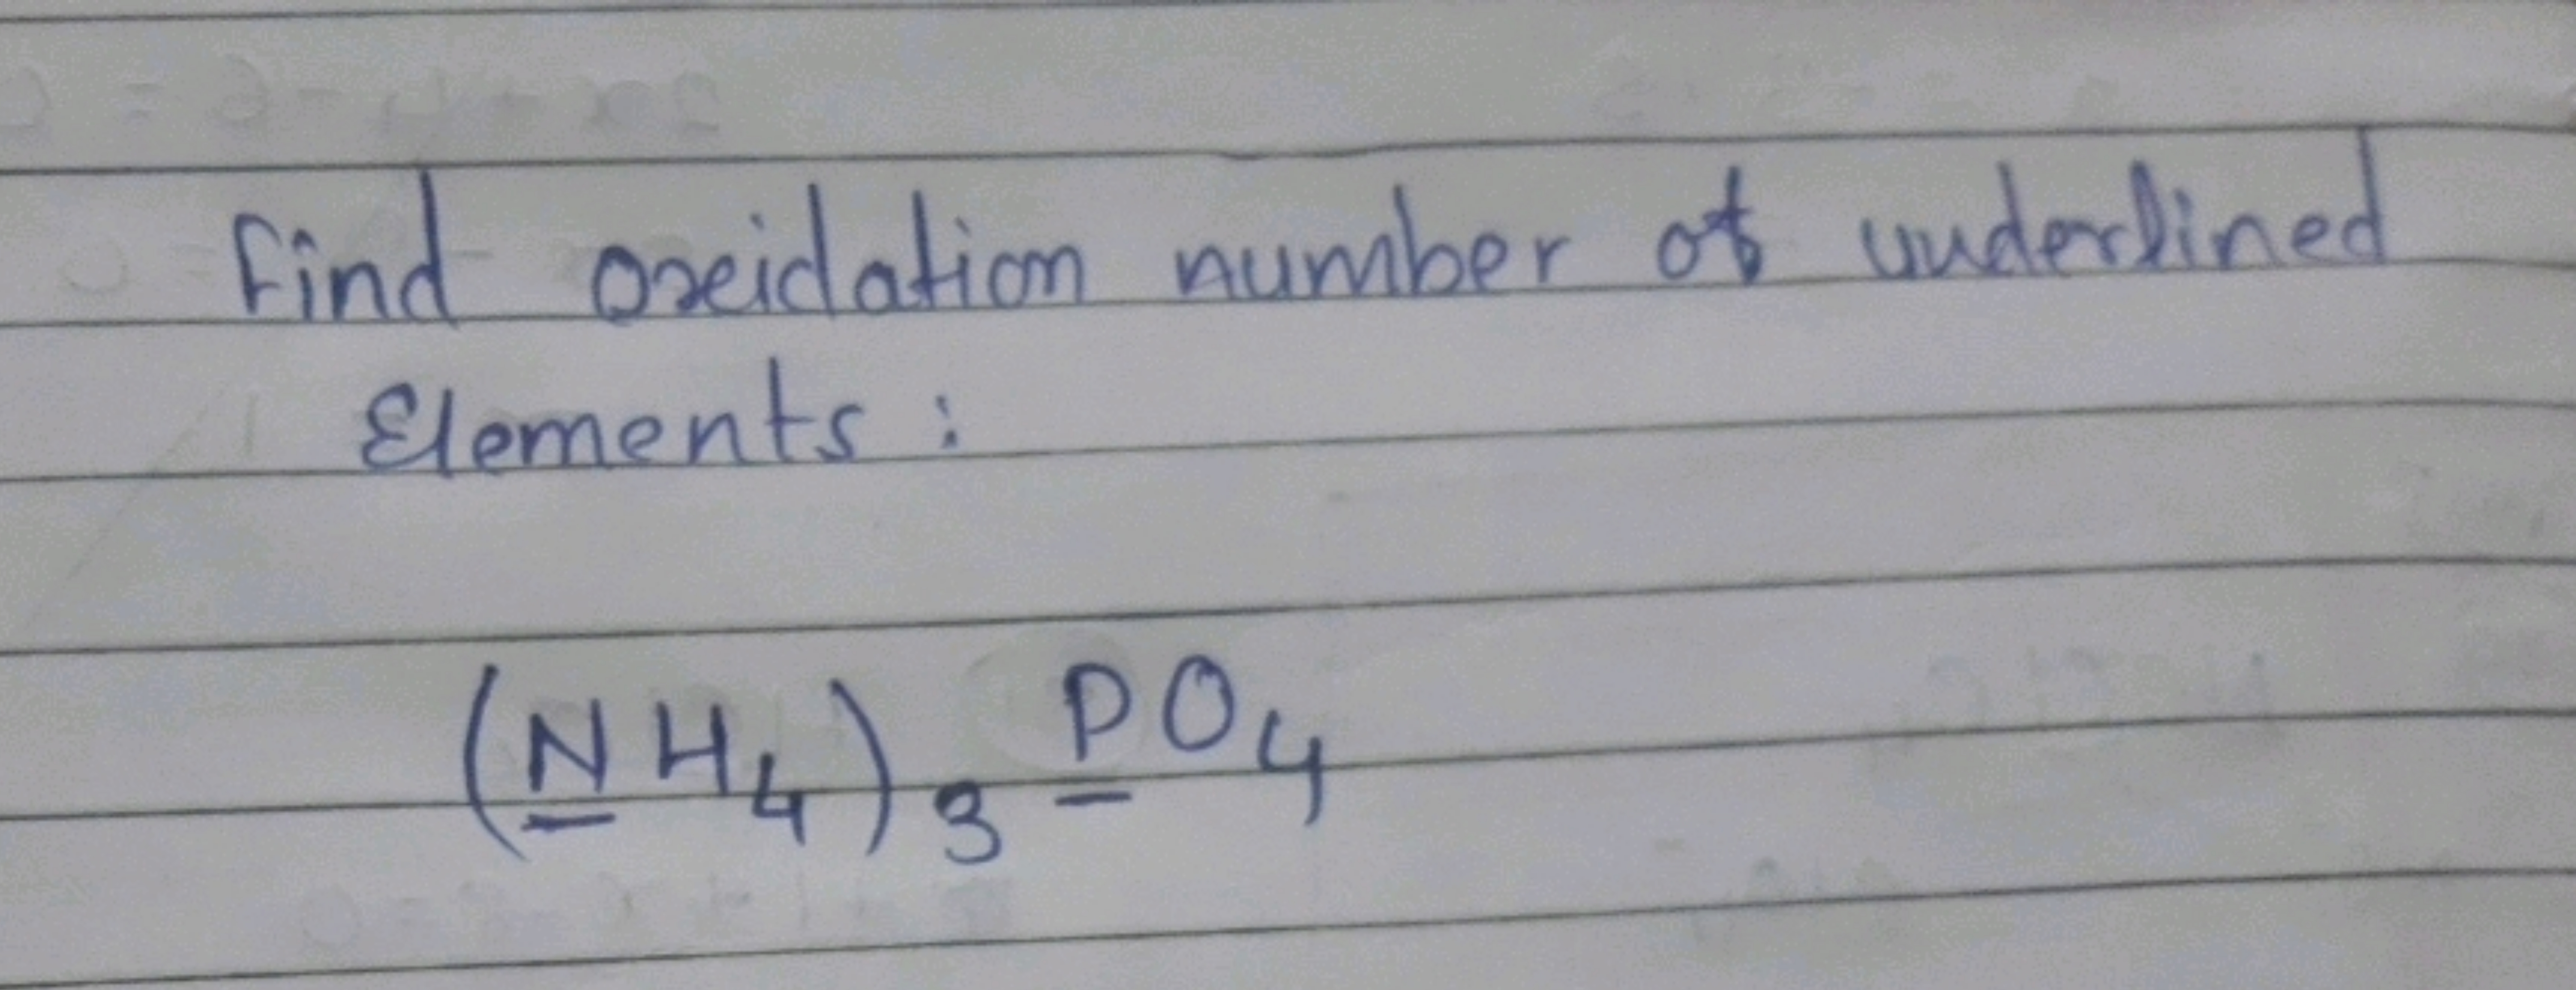 Find oxidation number of underlined
Elements :
(NH₄)₃ PO₄